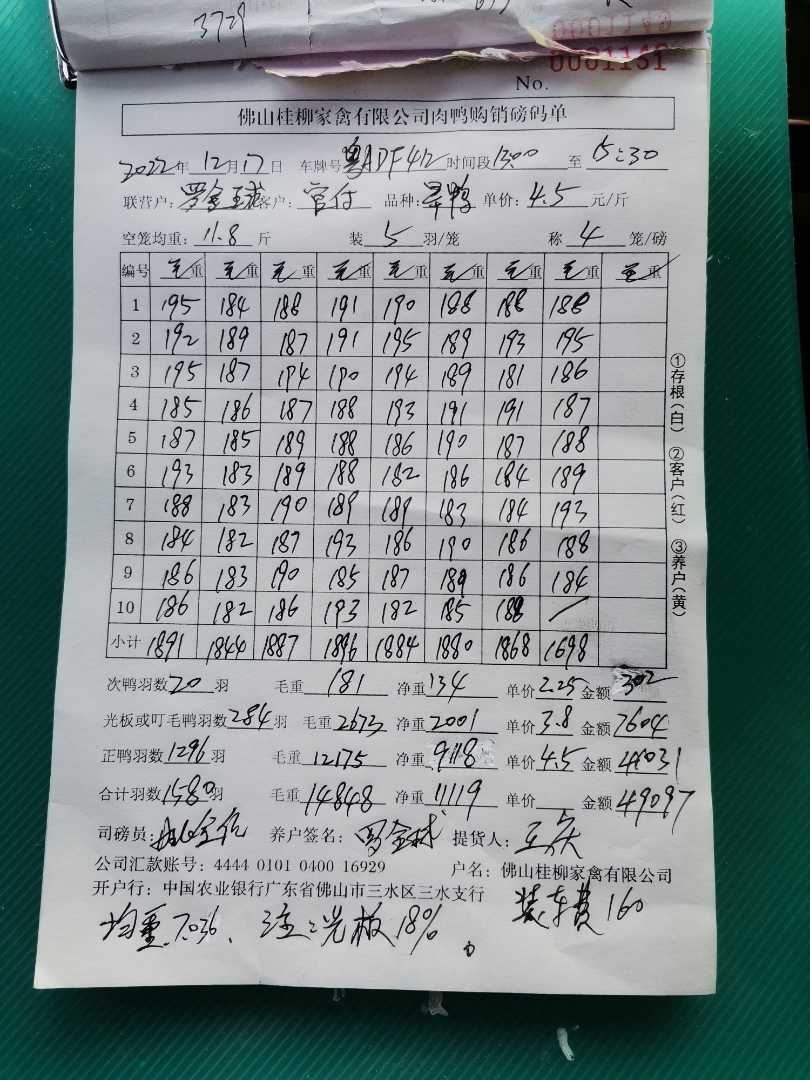 3729
0001149
0001151
No.
佛山桂柳家禽有限公司肉鸭购销磅码单
2022年12月17日 车牌号粤ADF412时间段1300至15:30
联营户:罗金球客户:官付 品种:旱鸭 单价:4.5元/斤
空笼均重:11.8斤 装5羽/笼 称4笼/磅
编号 毛重 毛重 毛重 毛重 毛重 毛重 毛重 毛重 毛重
1 195 184 188 191 190 188 188 188
2 192 189 187 191 195 189 193 195
3 195 187 194 190 194 189 181 186
4 185 186 187 188 193 191 191 187
5 187 185 189 188 186 190 187 188
6 193 183 189 188 182 186 184 189
7 188 183 190 189 189 183 184 193
8 184 182 187 193 186 190 186 188
9 186 183 190 185 187 189 186 184
10 186 182 186 193 182 185 188 /
小计 1891 1844 1887 1896 1884 1880 1868 1698
次鸭羽数20羽 毛重181净重134单价2.25金额302
光板或叮毛鸭羽数284羽 毛重2673净重2001单价3.8金额7604
正鸭羽数1296羽 毛重12175净重9118单价4.5金额41031
合计羽数1580羽 毛重14848净重11119单价 金额49097
司磅员: 养户签名:罗金球 提货人:
公司汇款账号:4444 0101 0400 16929 户名:佛山桂柳家禽有限公司
开户行:中国农业银行广东省佛山市三水区三水支行 装车费160
均重7.036、注:光板18%
①存根(白) ②客户(红) ③养户(黄)